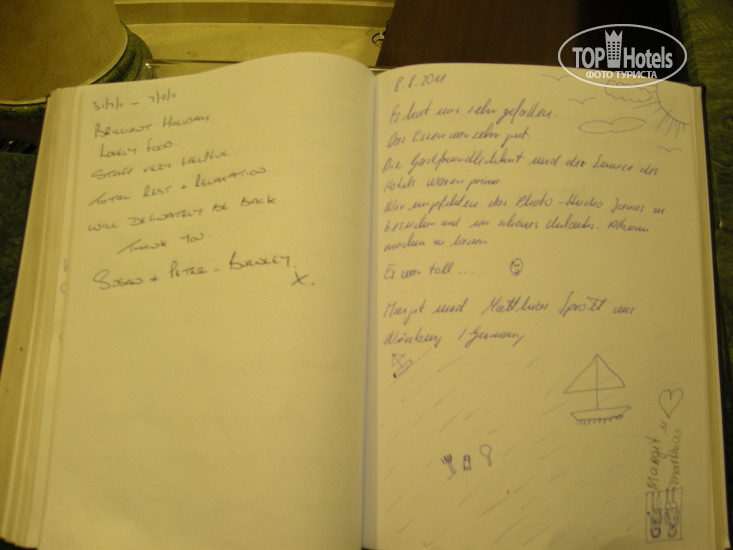 31/7/11 – 7/8/11
BRILLIANT HOLIDAY
LOVELY FOOD
STAFF VERY HELPFUL
TOTAL REST + RELAXATION
WILL DEFINATELY BE BACK
THANK YOU
SUSAN + PETER – BURNLEY.
X.
8.8.2011
Es hat uns sehr gefallen.
Das Essen war sehr gut.
Die Gastfreundlichkeit und der Service des
Hotels waren prima
Wir empfehlen das Photo-Studio zu
besuchen und ein schönes Urlaubs-Album
machen zu lassen
Es war toll.....
Margit und Matthias aus
Nürnberg / Germany
Margit u.
Matthias
TOP Hotels
ФОТО ТУРИСТА